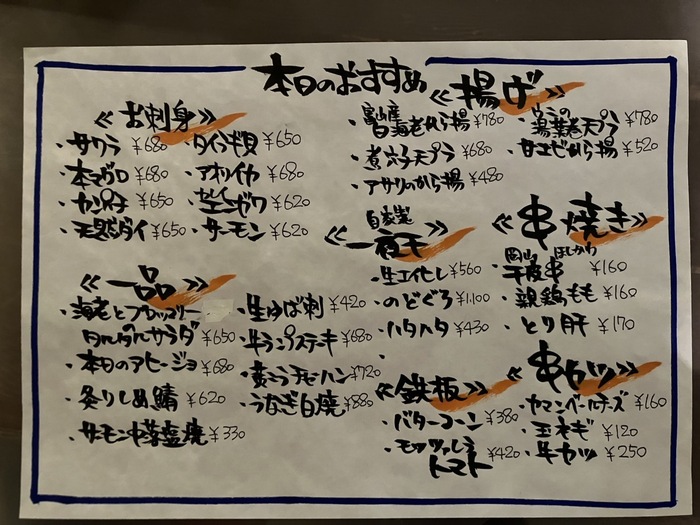 本日のおすすめ
≪お刺身≫
・サワラ ¥680
・本マグロ ¥680
・カンパチ ¥650
・天然ダイ ¥650
・タイラギ貝 ¥650
・アオリイカ ¥680
・生エンガワ ¥620
・サーモン ¥620
≪揚げ≫
・富山産
白海老から揚 ¥780
・煮穴子天プラ ¥680
・アサリのから揚 ¥480
湯葉巻天プラ ¥780
・甘エビから揚 ¥520
自家製
≪一夜干≫
・生エイヒレ ¥560
・のどぐろ ¥1,100
・ハタハタ ¥430
≪串焼き≫
岡山 ほしかわ
・干皮串 ¥160
・親鶏もも ¥160
・とり肝 ¥170
≪一品≫
・海老とブロッコリー
タルタルサラダ ¥650
・本日のアヒージョ ¥680
・炙りしめ鯖 ¥620
・サーモン中落塩焼 ¥330
・生ゆば刺 ¥420
・牛ランプステーキ ¥680
チャーハン ¥720
・うなぎ白焼 ¥880
≪鉄板≫
・バターコーン ¥380
・モッツァレラ
トマト ¥420
≪串カツ≫
・カマンベールチーズ ¥160
・玉ネギ ¥120
・牛カツ ¥250